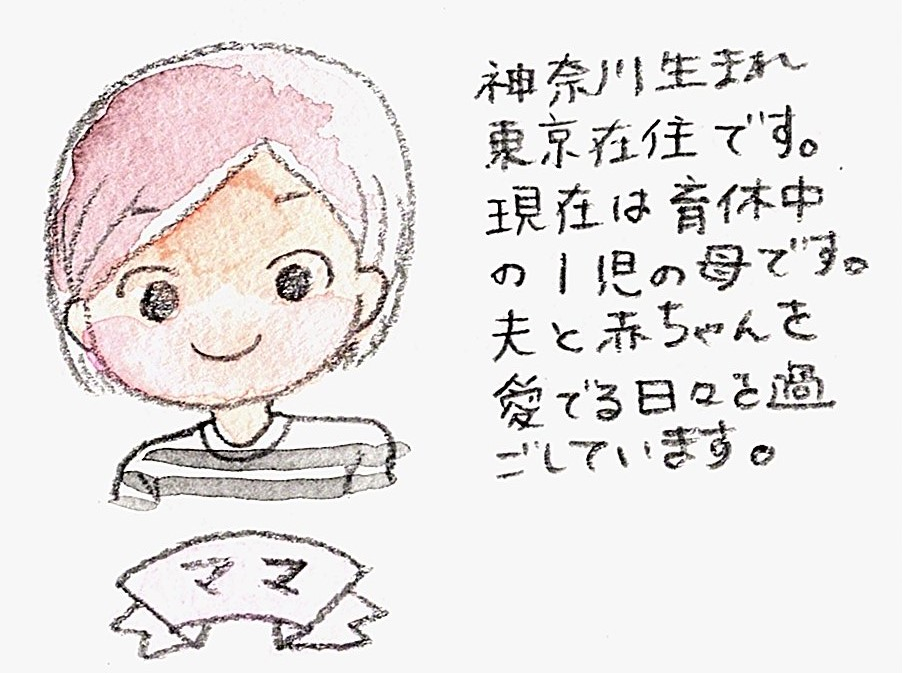 神奈川生まれ
東京在住です。
現在は育休中
の1児の母です。
夫と赤ちゃんを
愛でる日々を過
ごしています。
ママ